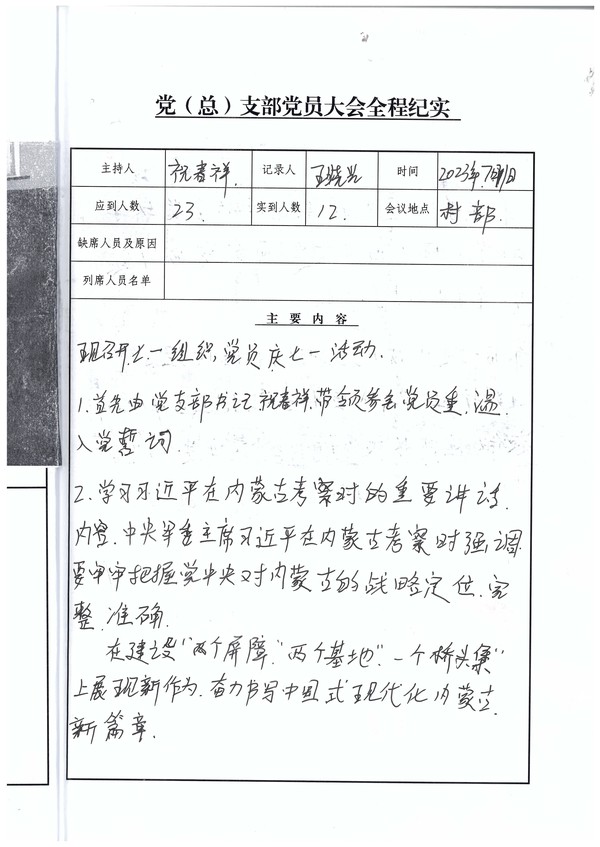 党（总）支部党员大会全程纪实
主持人 祝春祥. 记录人 王晓光 时间 2023年7月1日
应到人数 23. 实到人数 12. 会议地点 村部.
缺席人员及原因
列席人员名单
主要内容
现召开七一组织,党员庆七一活动.
1.首先由党支部书记祝春祥.带领参会党员重.温.
入党誓词.
2.学习习近平在内蒙古考察时的重要讲话.
内容.中央军委主席习近平在内蒙古考察时强调
要牢牢把握党中央对内蒙古的战略定位.完
整.准确.
在建设"两个屏障."两个基地".一个桥头堡"
上展现新作为.奋力书写中国式现代化内蒙古.
新篇章.